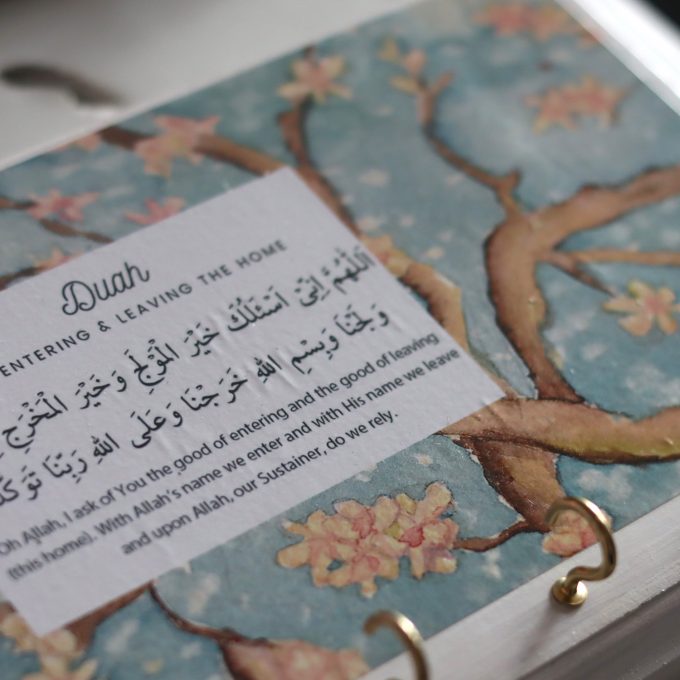 Duah
ENTERING & LEAVING THE HOME
اَللّٰهُمَّ اِنِّىْ اَسْئَلُكَ خَيْرَ الْمَوْلِجِ وَخَيْرَ الْمَخْرَجِ
وَلَجْنَا وَبِسْمِ اللهِ خَرَجْنَا وَعَلَى اللهِ رَبِّنَا
Oh Allah, I ask of You the good of entering and the good of leaving
(this home). With Allah's name we enter and with His name we leave
and upon Allah, our Sustainer, do we rely.